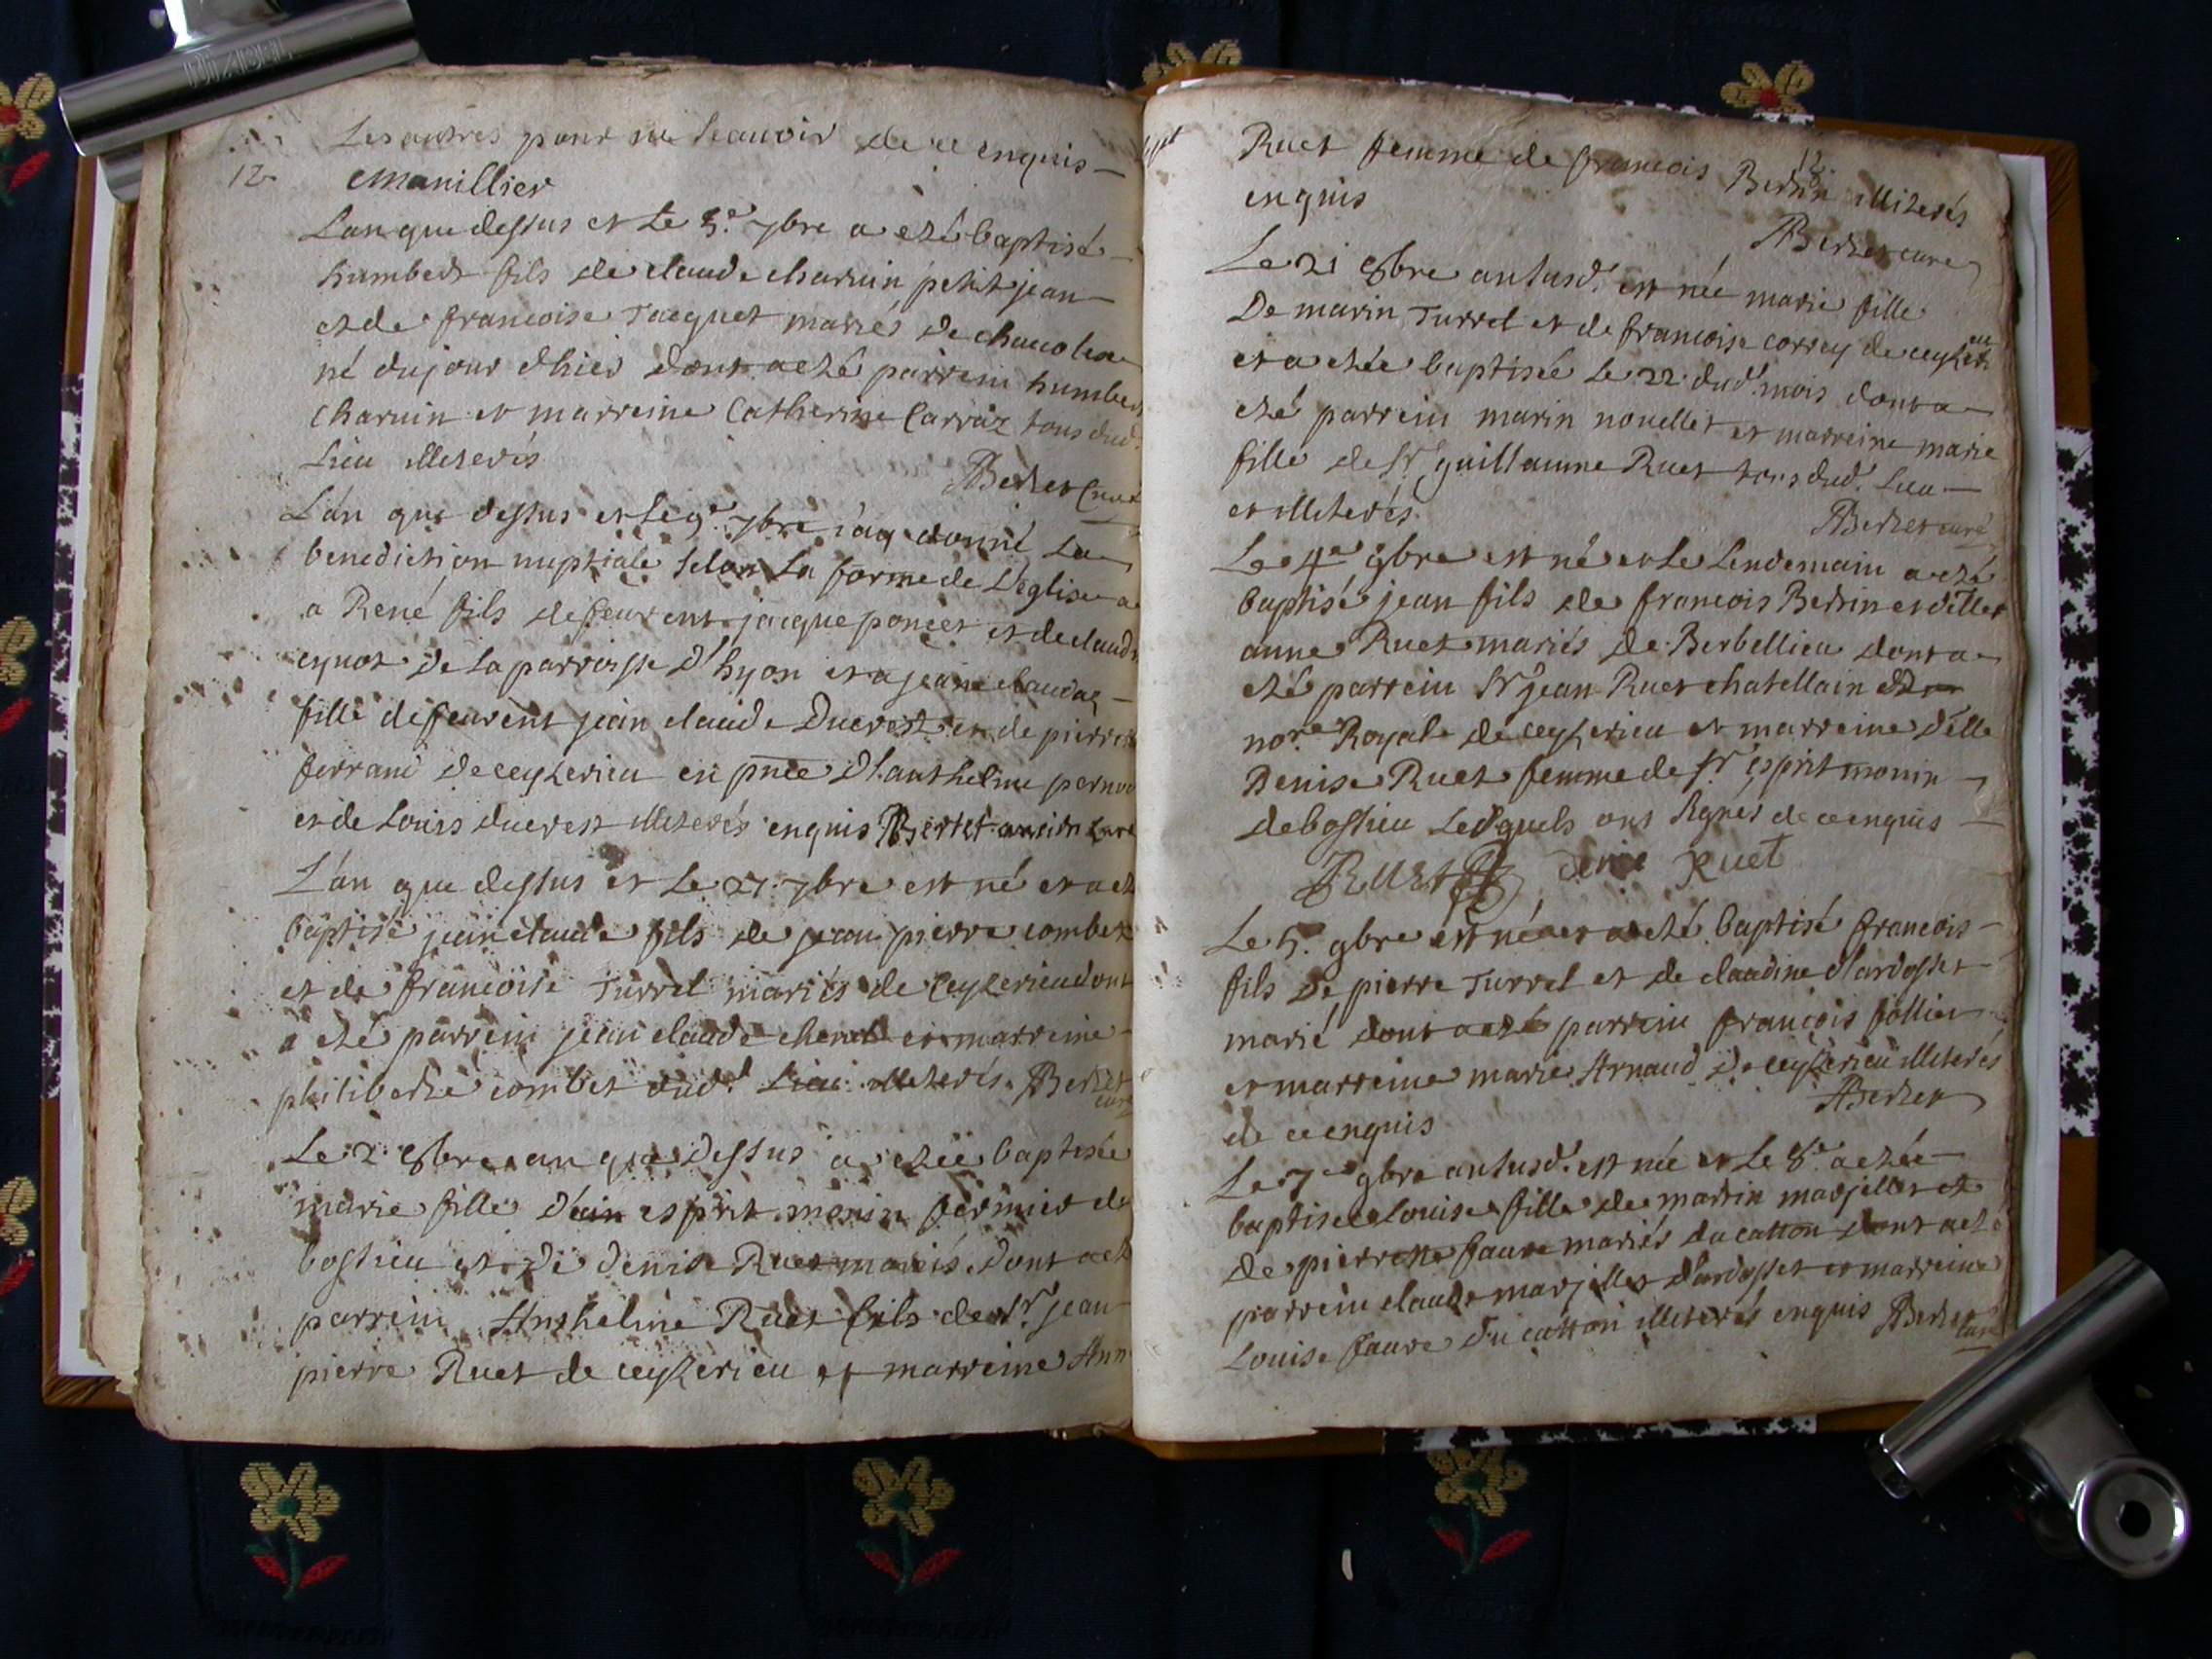 Les autres pour ne scauoir de ce enquis
12 Manillier
Lan que dessus et Le 5.e 7bre a eté baptisé
humbert fils de claude charuin petit jean
et de francoise Jacquet mariés de
né du jour dhier dont a eté parrein humbert
charuin et marreine Catherine Carraz tous dud.
Lieu illiterés
Bertet Curé
L'an que dessus et Le 9.e 7bre j'ay donné La
benediction nuptiale selon La forme de L'eglise
a René fils de jacque poncet et de
de La parroisse d'hyon et a jeane
fille de jean claude Ducrest et de pierrette
ferrand de ceyzerieu en pnce d'anthelme
et de Louis ducrest illiterés enquis Bertet curé
L'an que dessus et Le 27. 7bre est né et a eté
baptisé jean claude fils de jean pierre combet
et de francoise Turrel mariés de Ceyzerieu dont
a eté parrein jean claude et marreine
philiberte combet dud.t Lieu illiterés Bertet
curé
Le 2. 8bre an que dessus a etée baptisée
marie fille esprit monin fermier de
bossieu et de denise Ruet mariés dont a eté
parrein Anthelme Ruet fils de sr. jean
pierre Ruet de ceyzerieu et marreine Ann
12
Ruet femme de francois Bertin illiterés
enquis
Bertet curé
Le 21 8bre an susd.t est née marie fille
De marin Turrel et de francoise correy de
et a etée baptisée Le 22. dud.t mois dont a
eté parrein marin nouellet et marreine marie
fille de Sr guillaume Ruet tous dud.t Lieu
et illiterés
Bertet curé
Le 4e 9bre est né et Le Lendemain a eté
baptisé jean fils de francois Bertin et d'lle
anne Ruet mariés de Berbellieu dont a
eté parrein Sr jean Ruet chatellain
nore. Royale de ceyzerieu et marreine d'lle
Denise Ruet femme de Sr esprit monin
de bossieu Lesquels ont signés de ce enquis
Ruet denie Ruet
Le 5.e 9bre est né et a eté baptisé francois
fils De pierre Turrel et de claudine d'ardosset
marié dont a eté parrein françois follier
et marreine marie Arnaud de ceyzerieu illiterés
Bertet
de ce enquis
Le 7e 9bre an susd.t est née et Le 8.e a etée
baptisée Louise fille de martin marjollet et
de pierrette faure mariés du catton dont a eté
parrein claude marjollet d'ardosset et marreine
Louise faure du catton illiterés enquis Bertet
curé